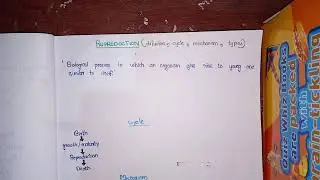 REPRODUCTION (definition, cycle, mechanism, types)
Biological process in which an organism give rise to young one
similar to itself
Cycle
Birth
growth/maturity
Reproduction
Death
Mechanism
Quiz Whiz Books
are packed
with
brain-tickling